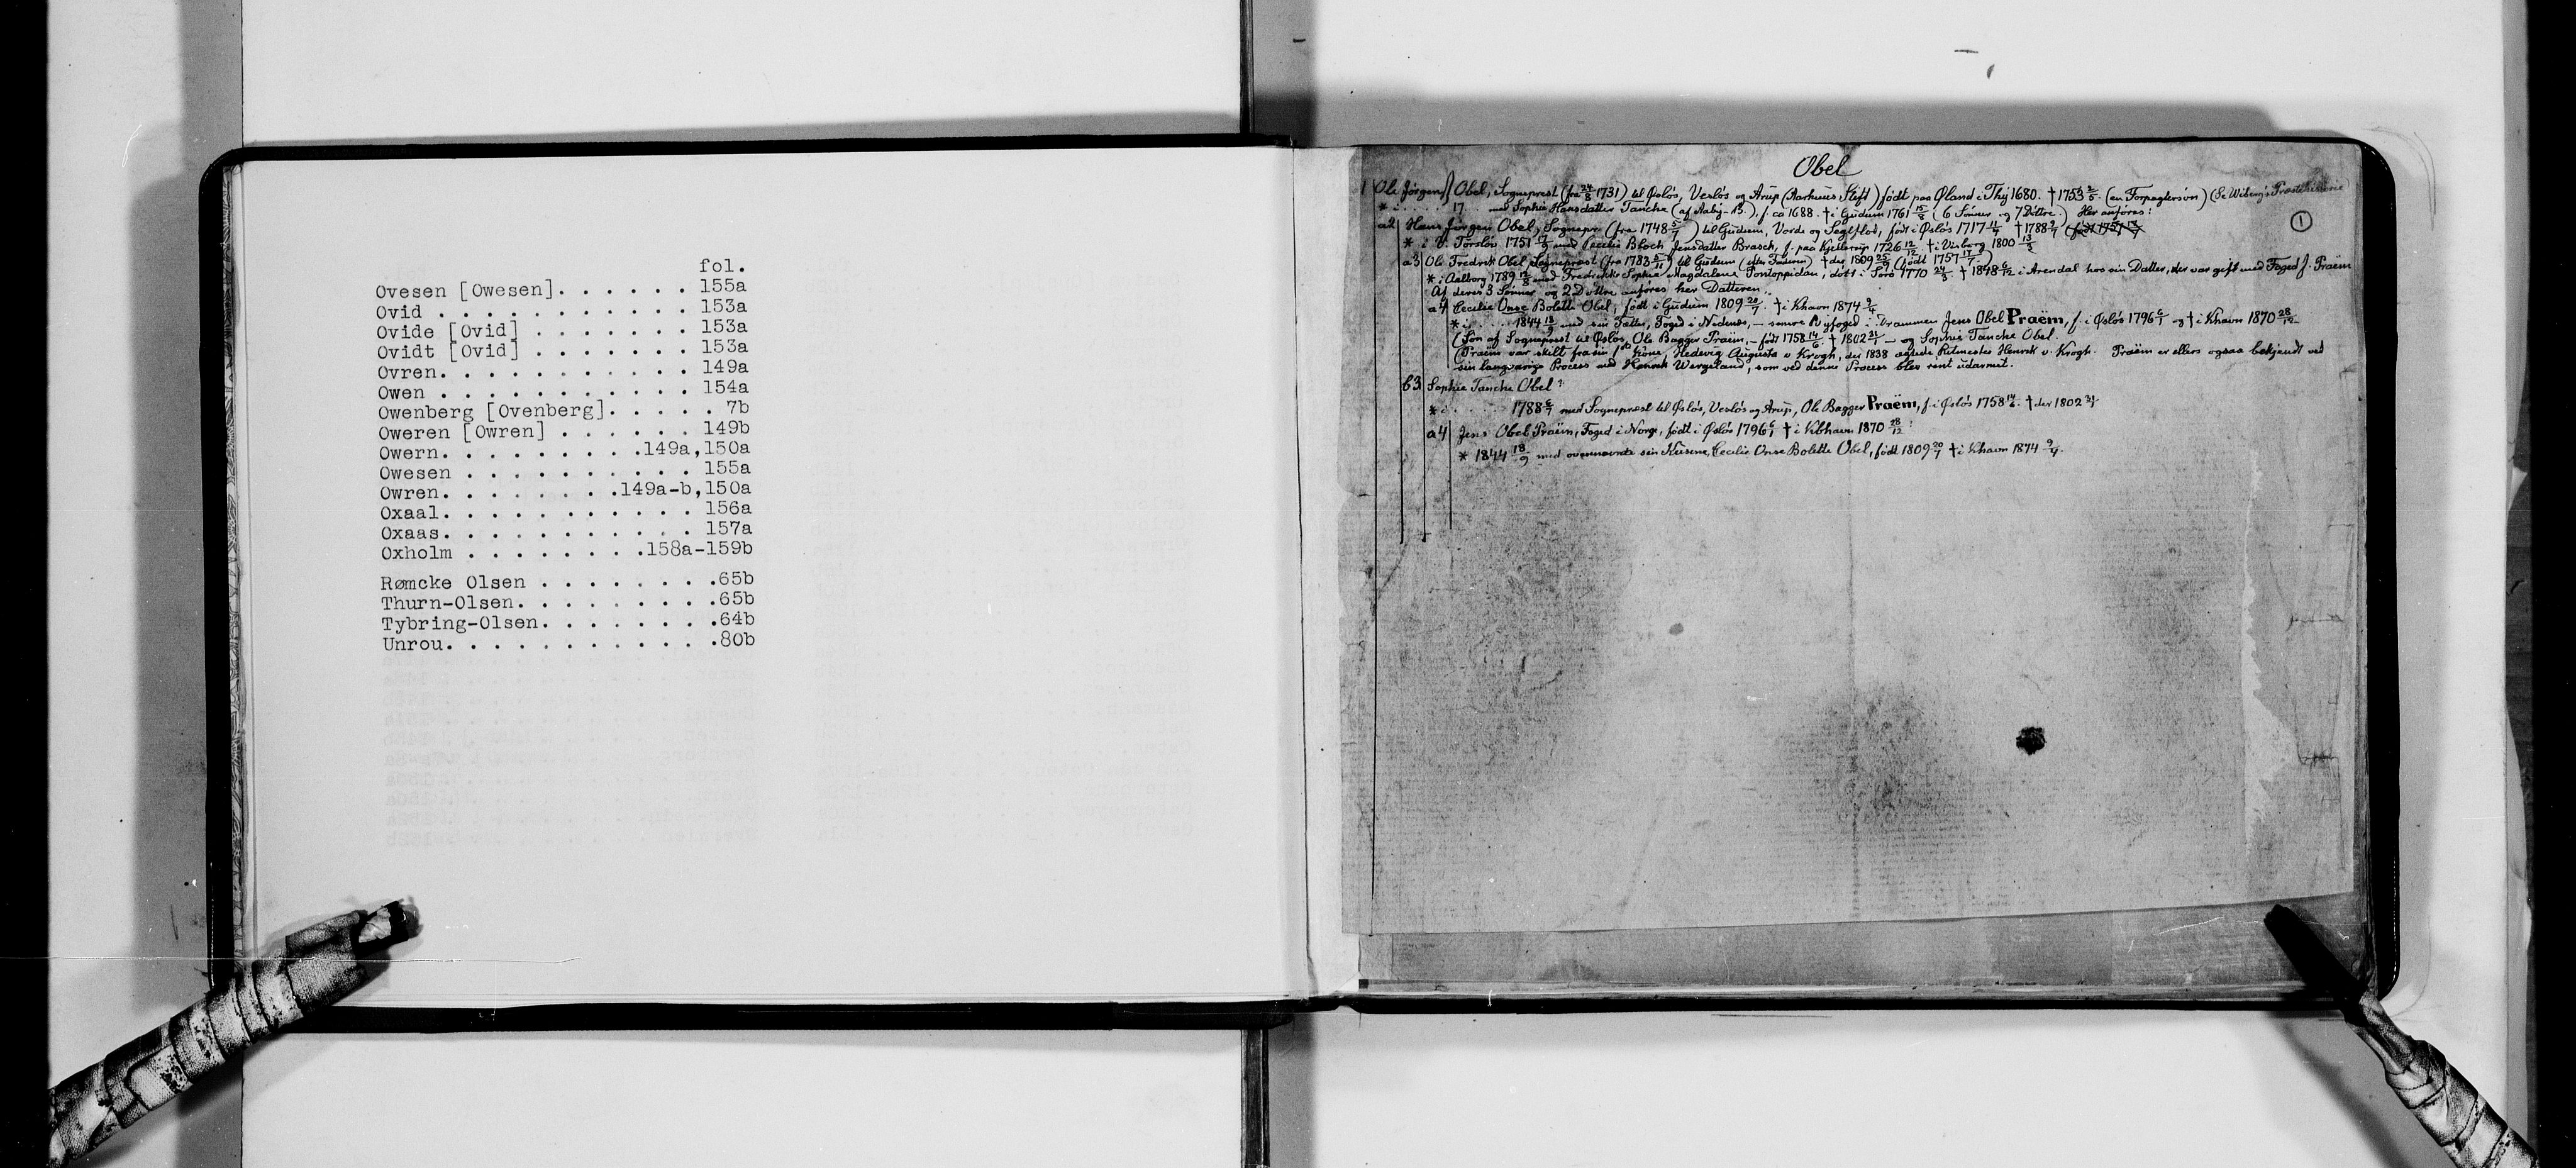 fol.
Ovesen [Owesen]. . . . . . . 155a
Ovid . . . . . . . . . . . 153a
Ovide [Ovid] . . . . . . . 153a
Ovidt [Ovid] . . . . . . . 153a
Ovren. . . . . . . . . . . 149a
Owen . . . . . . . . . . . 154a
Owenberg [Ovenberg]. . . . . 7b
Oweren [Owren] . . . . . . 149b
Owern. . . . . . . . .149a,150a
Owesen . . . . . . . . . . 155a
Owren. . . . . . . .149a-b,150a
Oxaal. . . . . . . . . . . 156a
Oxaas. . . . . . . . . . . 157a
Oxholm . . . . . . . .158a-159b
Rømcke Olsen . . . . . . . .65b
Thurn-Olsen. . . . . . . . .65b
Tybring-Olsen. . . . . . . .64b
Unrou. . . . . . . . . . . .80b
Obel
1
1 Ole Jørgens Obel, Sogneprest (fra 24/8 1731) til Øsløs, Vesløs og Arup (Aarhuus Stift) født paa Øland i Thy 1680. † 1753 2/5. (en Forpagtersøn) (Se Wibergs Præstehistorie)
* i . . . . 17 . . med Sophie Hansdatter Tanche (af Aaby-B.), f. ca 1688. † i Gudum 1761 15/8 (6 Sønner og 7 Døttre.) Her anføres:
a2 Hans Jørgen Obel, Sognepr. (fra 1748 5/7) til Gudum, Vorde og Seglflod, født i Øsløs 1717 11/7 † 1788 9/7
* i V. Torsløv 1751 17/9 med Cecilie Bloch Jensdatter Brasch, f. paa Kjellerup 1726 12/12. † i Viborg 1800 13/3
a3 Ole Fredrik Obel Sogneprest (fra 1783 5/11) til Gudum (efter Faderen) † der 1809 25/9 (født 1757 17/7.)
* i Aalborg 1789 19/8 med Fredrikke Sophie Magdalene Pontoppidan, døbt i Sorø 1770 24/3 † 1848 6/12 i Arendal hos sin Datter, der var gift med Foged J. Praëm
Af deres 3 Sønner og 2 Døttre anføres her Datteren.
a4 Cecilie Onse Bolette Obel, født i Gudum 1809 20/7. † i Khavn 1874 9/4
* i . . . . 1844 18/9 med sin Fætter, Foged i Nedenes, – senere Byfoged i Drammen Jens Obel Praëm, f. i Øsløs 1796 6/1 og † i Khavn 1870 28/12
(Søn af Sogneprest til Øsløs, Ole Bagger Praëm, – født 1758 14/6. † 1802 21/1 – og Sophie Tanche Obel.
(Praëm var skilt fra sin 1ste Kone, Hedevig Augusta v. Krogh, der 1838 ægtede Ritmester Henrik v. Krogh. Praëm er ellers ogsaa bekjendt ved
sin langvarige Process med Henrik Wergeland, som ved denne Process blev rent udarmet.
b3 Sophie Tanche Obel
* i . . . . 1788 6/7 med Sogneprest til Øsløs, Vesløs og Arup, Ole Bagger Praëm, f. i Øsløs 1758 14/6. † der 1802 21/1
a4 Jens Obel Praëm, Foged i Norge, født i Øsløs 1796 6/1 † i Kbhavn 1870 28/12
* 1844 18/9 med ovennævnte sin Kusine, Cecilie Onse Bolette Obel, født 1809 20/7 † i Khavn 1874 9/4.